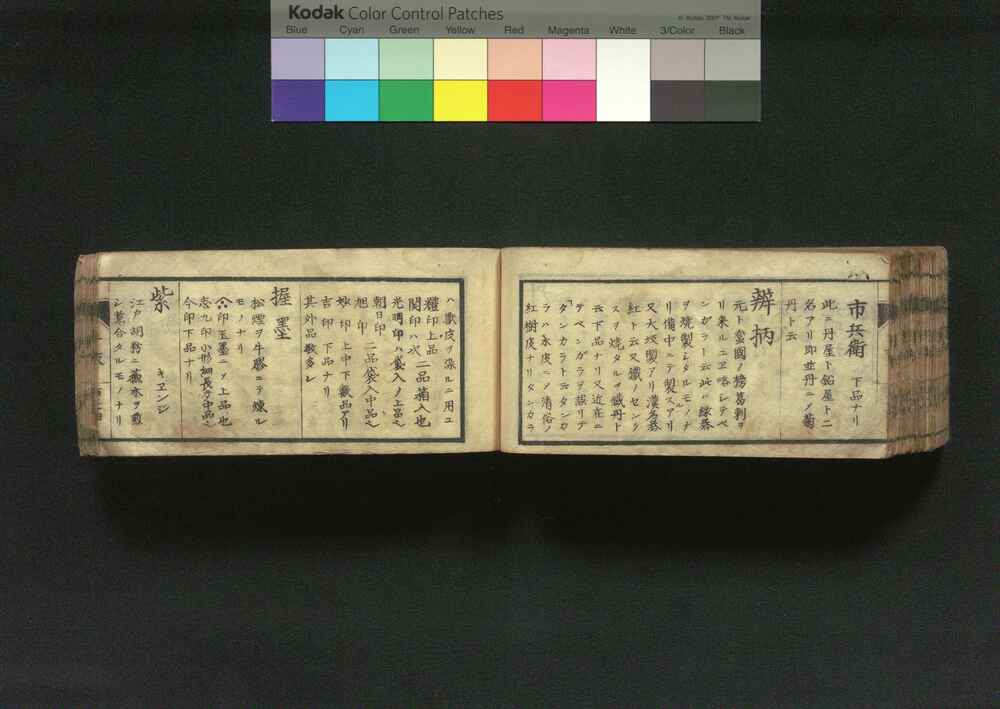 Kodak Color Control Patches
© Kodak, 2007 TM: Kodak
Blue Cyan Green Yellow Red Magenta White 3/Color Black
市兵衛 下品ナリ
此ニ丹屋ト鉛屋ト二
名アリ即並丹ニノ
丹ト云
辨柄
元ト蛮國ノ榜葛剌ヨ
リ来ルユヱ略シテベ
ンガラト云此ハ緑礬
ヲ焼製シタルモノナ
リ備中ニテ製スルアリ
又大坂製アリ漢名礬
紅ト云又鐵ノセンク
スヲ焼タルヲ鐵丹ト
云下品ナリ又近在ニ
テベンガラヲ茶リテ
タンカラト云タンカ
ラハ木皮ニノ清俗ノ
紅樹皮ナリタンカラ
ハ獣皮ヲ染ルニ用ユ
糧印上品 二品箱入也
関印ハ次
光明印ハ袋入ノ上品也
朝日印 二品袋入中品也
旭印
妙印 上中下数品アリ
吉印 下品ナリ
其外品数多シ
握墨
松煙ヲ牛膠ニテ煉ル
モノナリ
印玉墨ニノ上品也
志九印小形細長ク中品也
今印下品ナリ
紫 キヱンジ
江戸胡粉ニ蘇木ヲ煎
シ葉合タルモノナリ